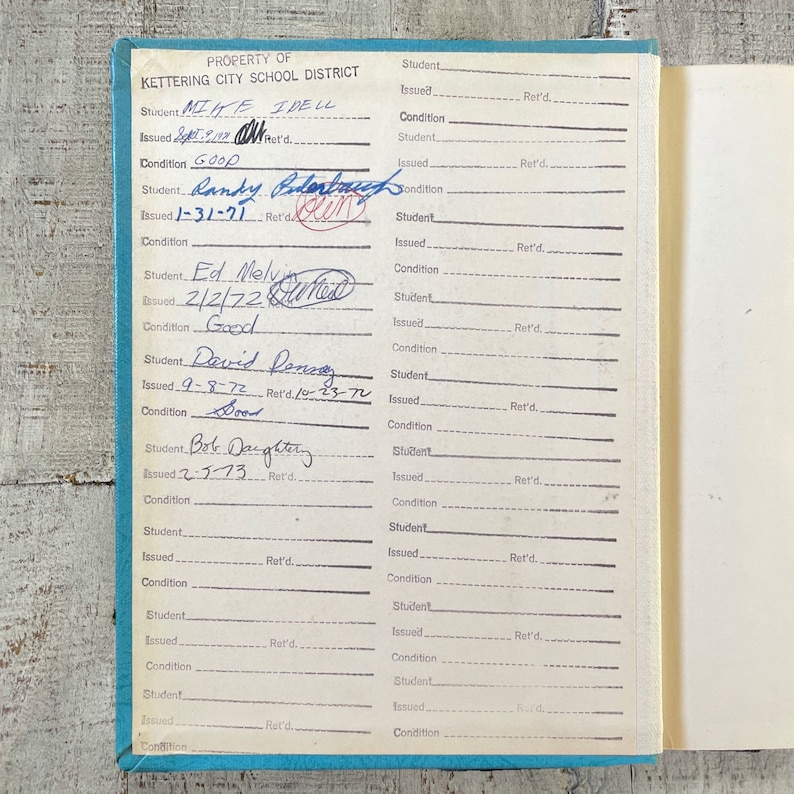 PROPERTY OF
KETTERING CITY SCHOOL DISTRICT
Student MIKE IDELL
Issued Sept. 9, 1971 Ret'd.
Condition GOOD
Student Randy
Issued 1-31-71 Ret'd.
Condition
Student Ed Melvin
Issued 2/2/72 Ret'd.
Condition Good
Student David
Issued 9-8-72 Ret'd. 10-23-72
Condition Good
Student Bob Daughtery
Issued 2-5-73 Ret'd.
Condition
Student
Issued Ret'd.
Condition
Student
Issued Ret'd.
Condition
Student
Issued Ret'd.
Condition
Student
Issued Ret'd.
Condition
Student
Issued Ret'd.
Condition
Student
Issued Ret'd.
Condition
Student
Issued Ret'd.
Condition
Student
Issued Ret'd.
Condition
Student
Issued Ret'd.
Condition
Student
Issued Ret'd.
Condition
Student
Issued Ret'd.
Condition
Student
Issued Ret'd.
Condition